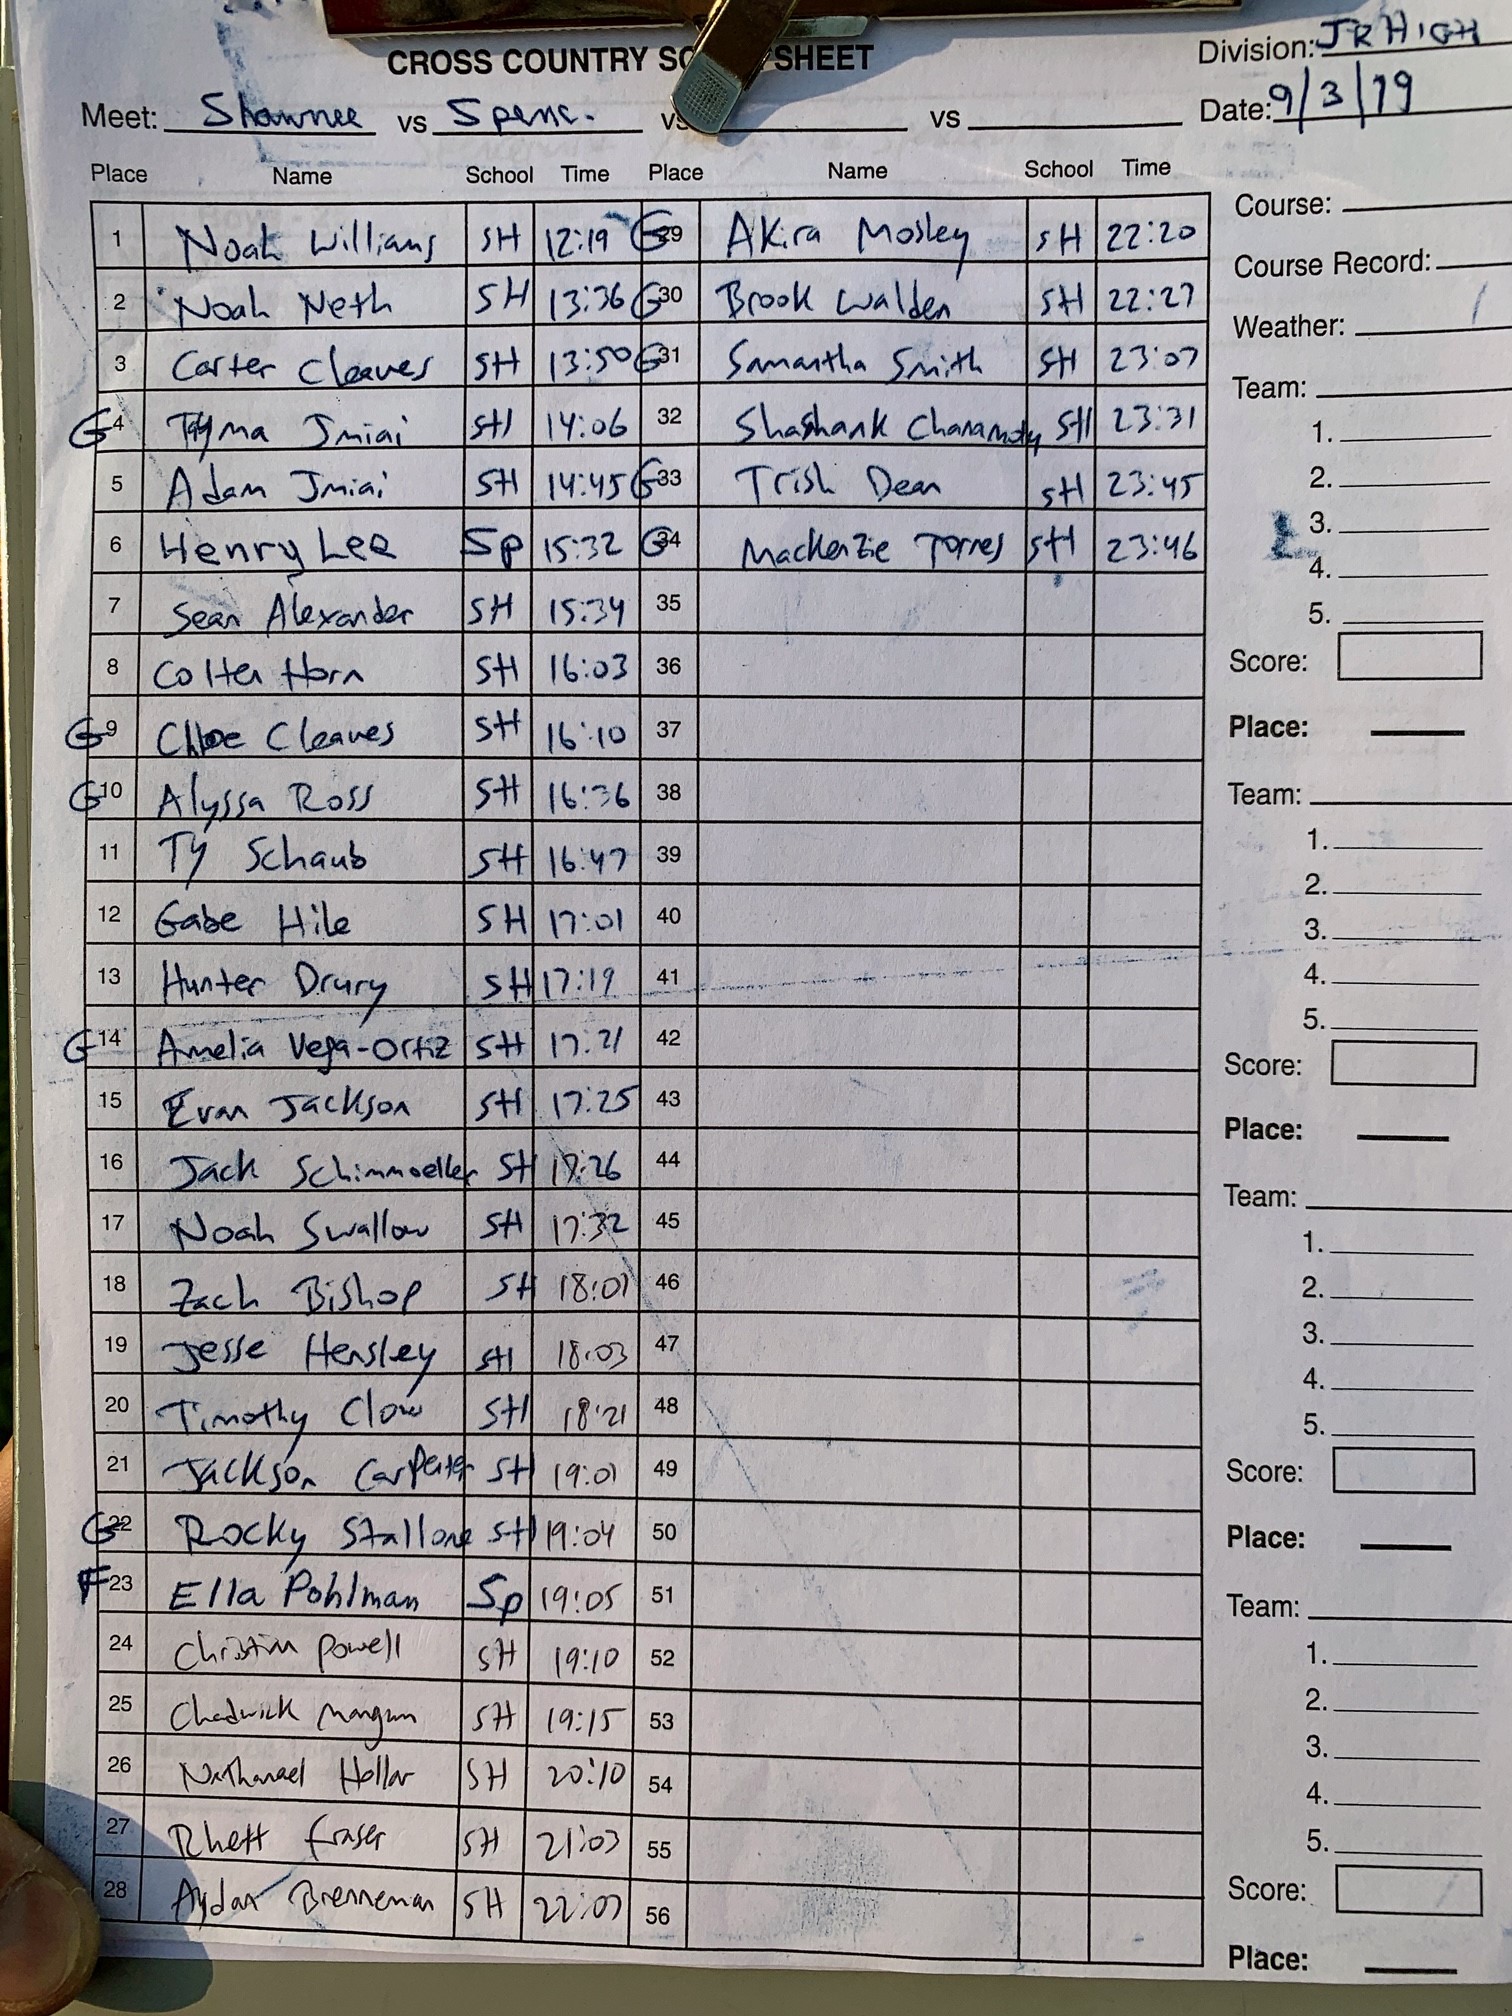 CROSS COUNTRY SC SHEET
Division: JR HIGH
Meet: Shawnee vs Spenc. vs vs
Date: 9/3/19
Place Name School Time Place Name School Time
1 Noah Williams SH 12:19 G 29 Akira Mosley SH 22:20
2 Noah Neth SH 13:36 G 30 Brook Walden SH 22:27
3 Carter Cleaves SH 13:50 G 31 Samantha Smith SH 23:07
G 4 Tayma Jmiai SH 14:06 32 Shashank SH 23:31
5 Adam Jmiai SH 14:45 G 33 Trish Dean SH 23:45
6 Henry Lee Sp 15:32 G 34 Mackenzie Torres SH 23:46
7 Sean Alexander SH 15:34 35
8 Colter Horn SH 16:03 36
G 9 Chloe Cleaves SH 16:10 37
G 10 Alyssa Ross SH 16:36 38
11 Ty Schaub SH 16:47 39
12 Gabe Hile SH 17:01 40
13 Hunter Drury SH 17:19 41
G 14 Amelia Vega-Ortiz SH 17:21 42
15 Evan Jackson SH 17:25 43
16 Jack Schimmoeller SH 17:26 44
17 Noah Swallow SH 17:32 45
18 Zach Bishop SH 18:01 46
19 Jesse Hensley SH 18:03 47
20 Timothy Clow SH 18:21 48
21 Jackson Carpenter SH 19:01 49
G 22 Rocky Stallone SH 19:04 50
F 23 Ella Pohlman Sp 19:05 51
24 Christian Powell SH 19:10 52
25 Chadwick Mangun SH 19:15 53
26 Nathanael Hollar SH 20:10 54
27 Rhett Fraser SH 21:03 55
28 Aydan Brenneman SH 22:07 56
Course:
Course Record:
Weather:
Team:
1.
2.
3.
4.
5.
Score:
Place:
Team:
1.
2.
3.
4.
5.
Score:
Place:
Team:
1.
2.
3.
4.
5.
Score:
Place:
Team:
1.
2.
3.
4.
5.
Score:
Place: